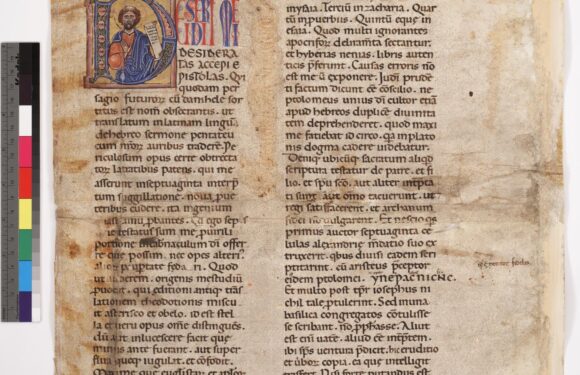 DESIDERA
TAS ACCEPI E
PISTOLAS. Qui
quodam per
sagio futuroꝝ cū danihele sor
titus est nom̄ obsecrantis. ut
translatum in latinam linguā
de hebreo sermone pentateu
cum nr̄oꝝ auribus tradere. Pe
riculosum opus certe obtrecta
toꝝ latratibus patens. qui me
asserunt in septuaginta interp̄
tum suggillatione. noua p̄ ue
teribus cudere. ita ingenium
uinum p̄bantes. Cū ego sep̄
testatus sum me, p uirili
portione in tabernaculū dī offer
re que possim. nec opes alteri
Quod
ut auderem. origenis me studiū
puocat. qui editioni antiq̄ trās
lationem theodotionis miscu
it asterisco et obelo. id est stel
la et ueru opus om̄e distinguēs.
dū aut inlucescere facit que
minus ante fuerant. aut super
flua queq; iugulat. et cōfodit.
Maxime que euglistaꝝ et aplōꝝ
mysaia. Tercium in zacharia. Quar
tū in puerbiis. Quintū eque in
esaia. Quod multi ignorantes
apocrifoꝝ deliramta sectantur.
et hyberias nenias. libris auten
ticis p̄ferunt. Causas erroris nō
est me ū exponere. Iudi prudē
ti factum dicunt ēē cōsilio. ne
ptolomeus unius dī cultor etiā
apud hebreos duplicē diuinita
tem deprehenderet. quod maxi
me faciebat id circo. q̄a in plato
nis dogma cadere uidebatur.
Deniq; ubicūq; sacratum aliqd
scriptura testatur de patre. et fi
lio. et sp̄u sc̄o. aut aliter int̄pta
ti sunt. aut om̄ino tacuerunt. ut
regi satisfacerent. et archanum
fidei nō uulgarent. Et nescio qs
primus auctor septuaginta ce
lulas alexandrie m̄datio suo ex
truxerit. qbus diuisi eadem scri
ptitarint. cū aristeus p̄ceptor
eidem ptolomei. ynepacnichc.
Et multo post tp̄r iosephus ni
chil tale p̄tulerint. Sed in una
basilica congregatos cōtulisse
se scribant. nō pphasse. Aliut
est eni uate. aliud ēē int̄ptem.
ibi sp̄s uentura p̄dicit. hic eruditio
et uboꝝ copia. ea que intelligit
transfert. Nisi forte putandus est